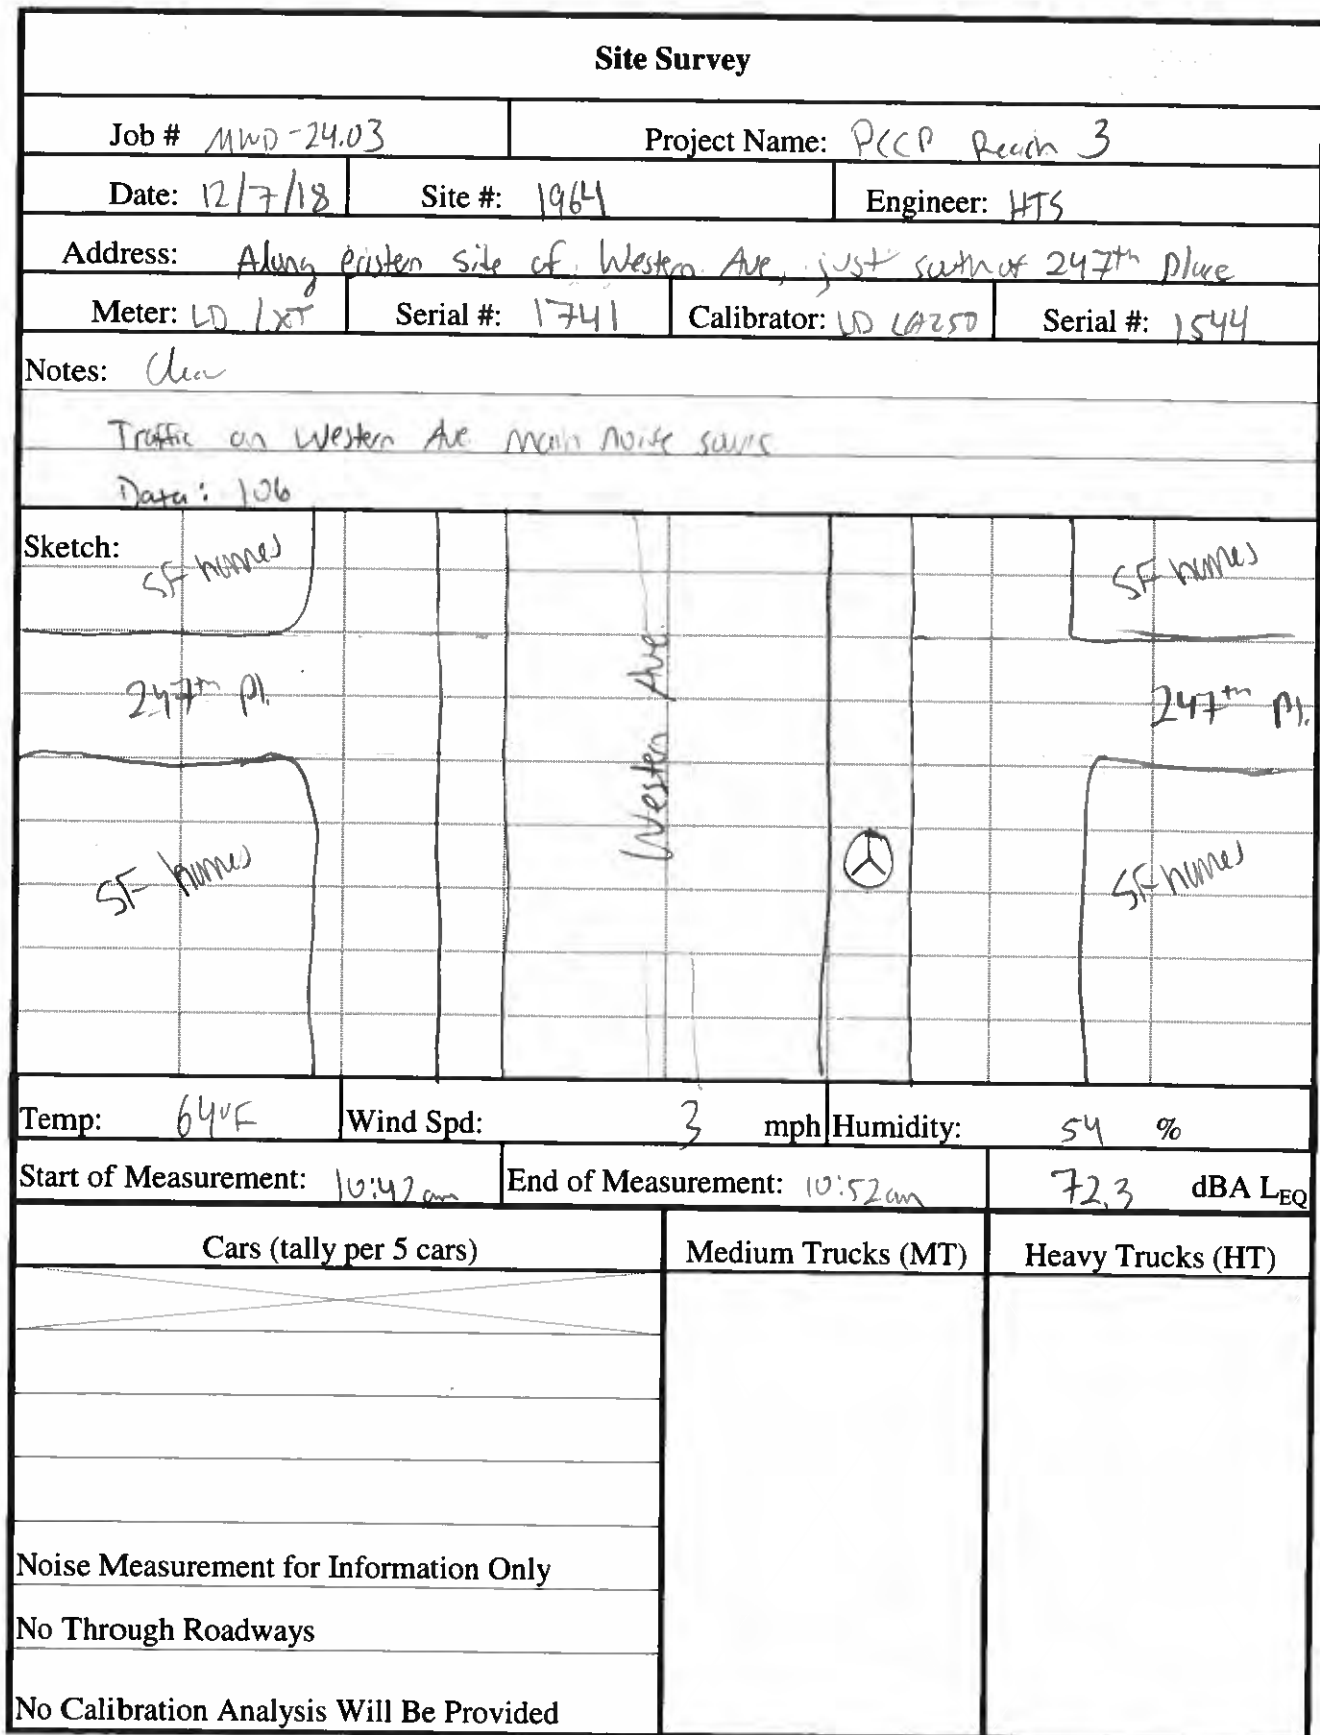 Site Survey
Job # MWD-24.03 Project Name: PCCP Reach 3
Date: 12/7/18 Site #: 1964 Engineer: HTS
Address: Along eastern site of Western Ave, just south of 247th Place
Meter: LD LXT Serial #: 1741 Calibrator: LD CA250 Serial #: 1544
Notes: Clear
Traffic on Western Ave main noise
Data: 106
Sketch:
SF homes SF homes
247th Pl. Western Ave. 247th Pl.
SF homes SF homes
Temp: 64°F Wind Spd: 3 mph Humidity: 54 %
Start of Measurement: 10:42am End of Measurement: 10:52am 72.3 dBA LEQ
Cars (tally per 5 cars) Medium Trucks (MT) Heavy Trucks (HT)
Noise Measurement for Information Only
No Through Roadways
No Calibration Analysis Will Be Provided